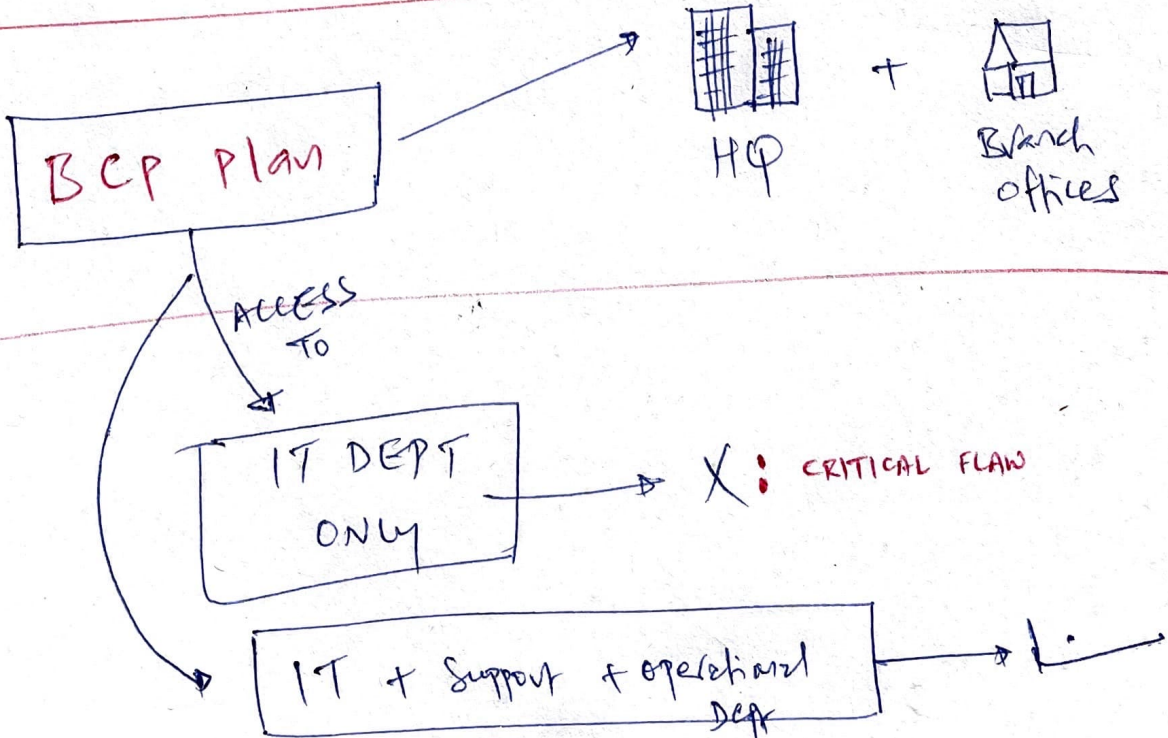 BCP Plan
HQ
+
Branch
offices
ACCESS
TO
IT DEPT
ONLY
X : CRITICAL FLAW
IT + Support + operational
Dept